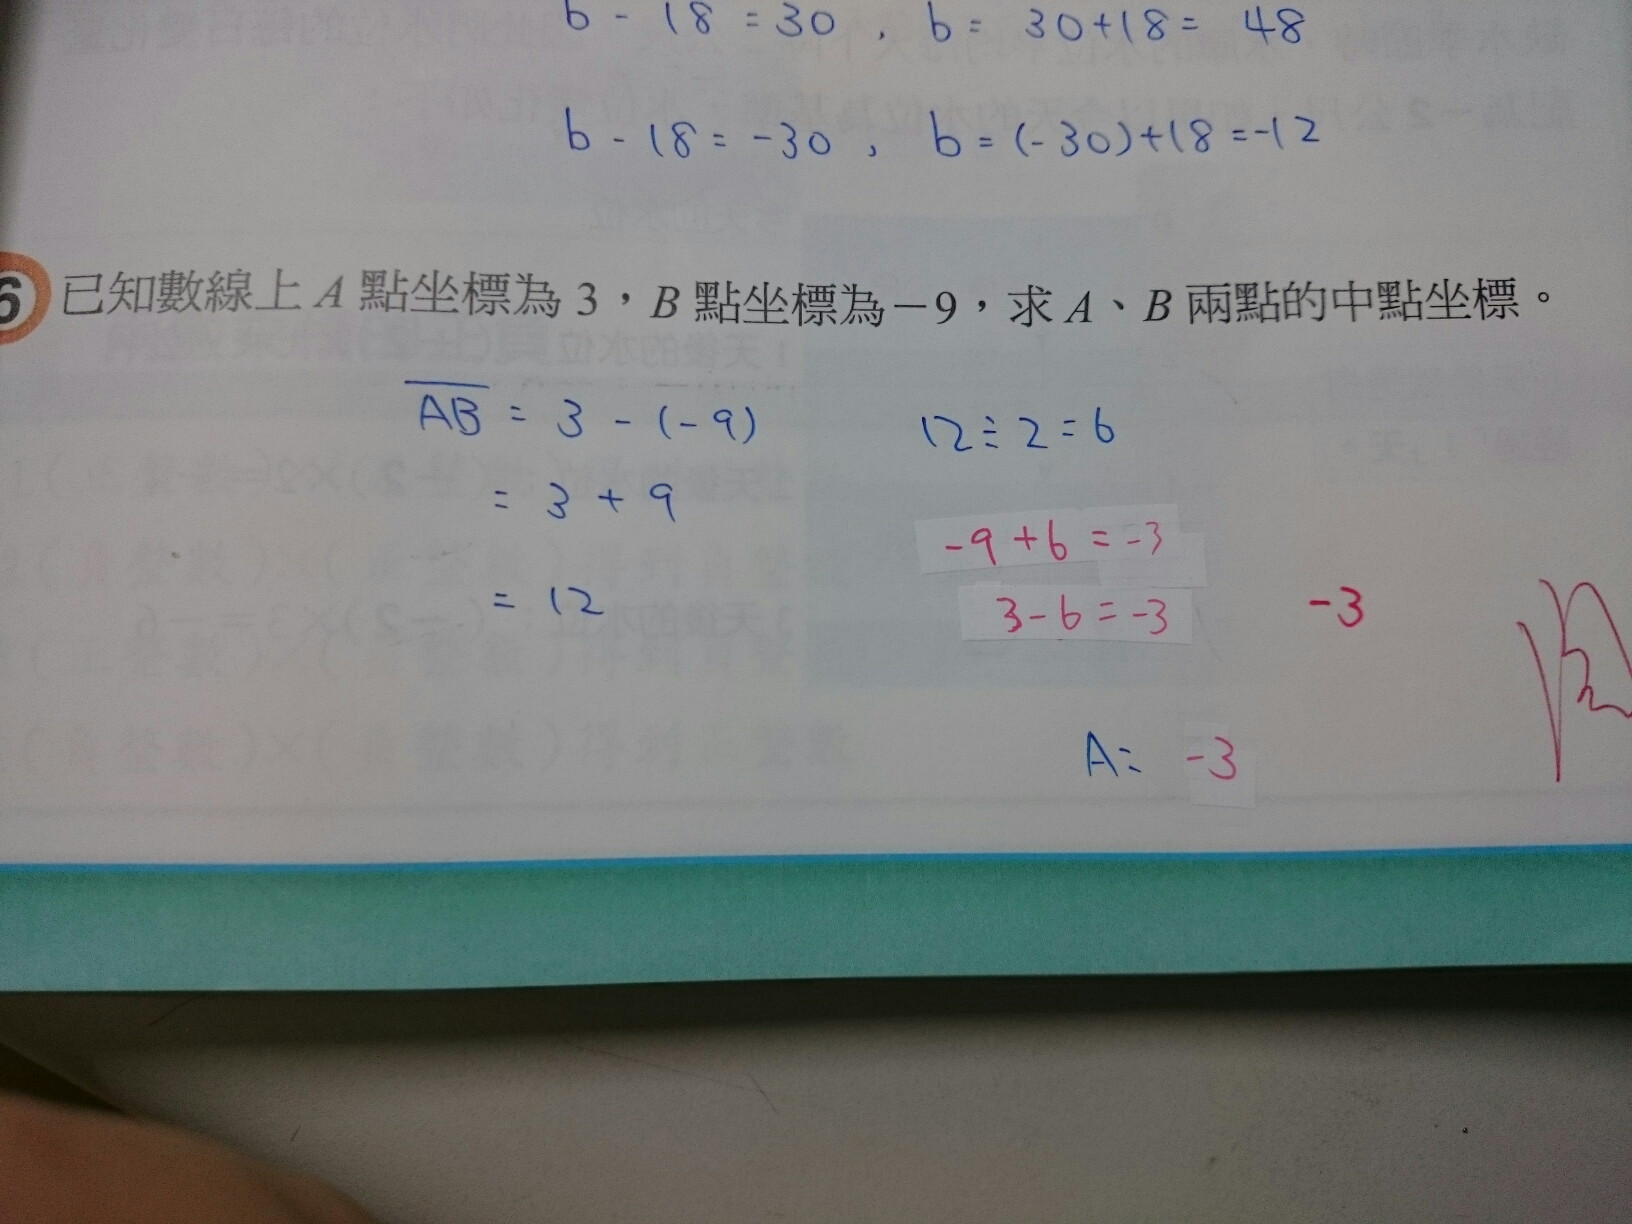 b - 18 = 30 , b = 30+18 = 48
b - 18 = -30 , b = (-30)+18 = -12
6 已知數線上 A 點坐標為 3，B 點坐標為－9，求 A、B 兩點的中點坐標。
AB = 3 - (-9)
12 ÷ 2 = 6
= 3 + 9
-9 + 6 = -3
= 12
3 - 6 = -3
-3
A: -3